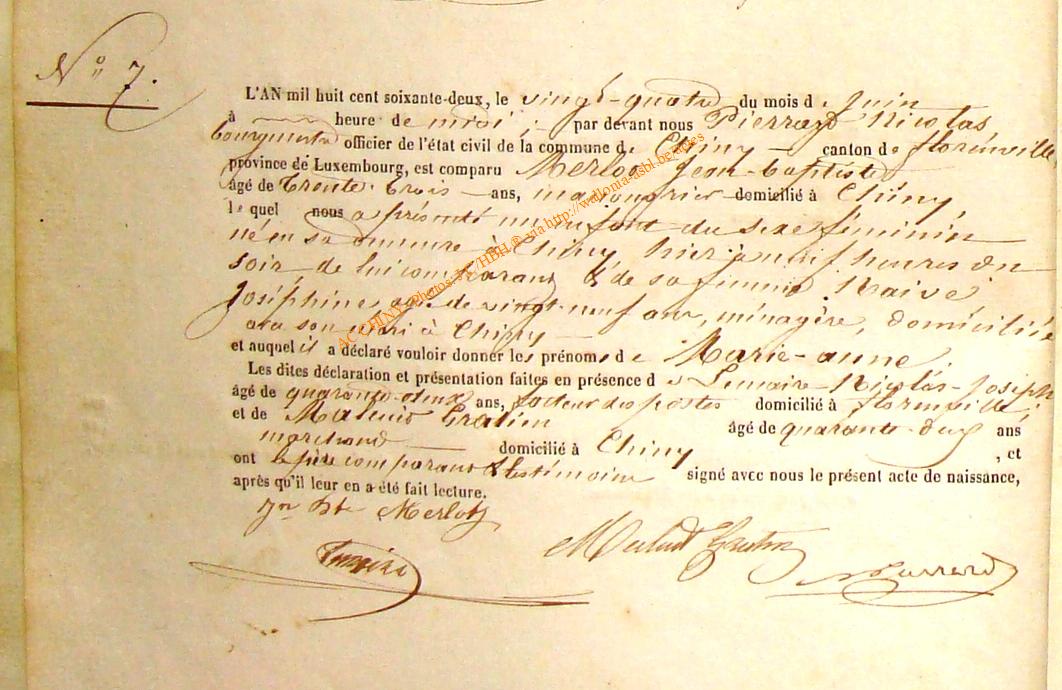 N° 7.
L'AN mil huit cent soixante-deux, le vingt-quatre du mois de Juin
à heure de midi, par devant nous Pierrard Nicolas,
bourgmestre officier de l'état civil de la commune de Chiny canton de florenville
province de Luxembourg, est comparu Merlot Jean-baptiste
âgé de trente-trois ans, domicilié à Chiny,
lequel nous a présenté un enfant du sexe féminin
né en sa demeure à Chiny, hier à neuf heures du
soir, de lui comparant & de sa femme Naivé
Joséphine agée de vingt-neuf ans, ménagère, domiciliée
avec son mari à Chiny
et auquel il a déclaré vouloir donner les prénoms de Marie-anne,
Les dites déclaration et présentation faites en présence de Lemaire-Nicolas-Joseph
âgé de quarante-deux ans, facteur des postes domicilié à florenville,
et de Gratien âgé de quarante-deux ans
marchand domicilié à Chiny , et
ont le père comparant & les témoins signé avec nous le présent acte de naissance,
après qu'il leur en a été fait lecture.
Jn Bte Merlot
Lemaire
Gratien
NPierrard
AC CHINY - Photos: /HBH ® via http://wallonia-asbl.be/actes